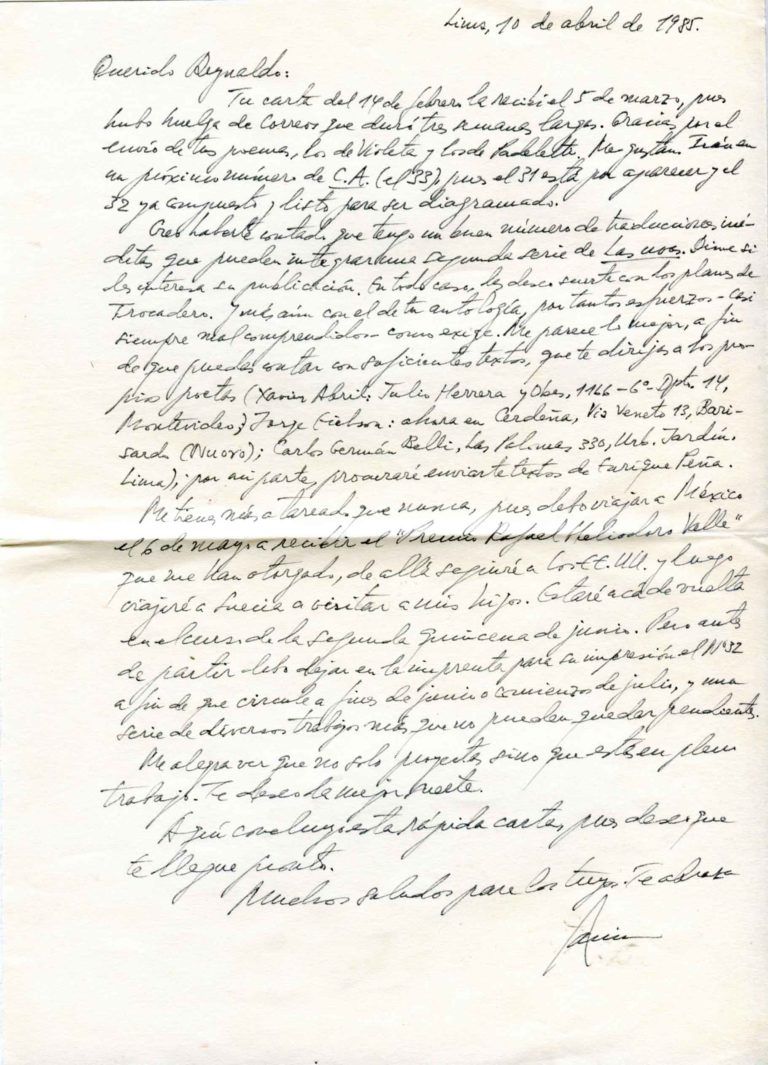 Lima, 10 de abril de 1985.
Querido Reynaldo:
Tu carta del 14 de febrero la recibí el 5 de marzo, pues
hubo huelga de Correos que duró tres semanas largas. Gracias por el
envío de tus poemas, los de Violeta y los de Padeletti. Me gustan. Irán en
un próximo número de C.A. (el 33), pues el 31 está por aparecer y el
32 ya compuesto y listo para ser diagramado.
Creo haberte contado que tengo un buen número de traducciones iné-
ditas que pueden integrar una segunda serie de Las uvas. Dime si
les interesa su publicación. En todo caso, les deseo suerte con los planes de
Trocadero. Y más aún con el de tu antología, por tantos esfuerzos - casi
siempre mal comprendidos - como exige. Me parece lo mejor, a fin
de que puedas contar con suficientes textos, que te dirijas a los pro-
pios poetas (Xavier Abril: Julio Herrera y Obes, 1166 - 6º - Dpto. 14,
Montevideo; Jorge Eielson: ahora en Cerdeña, Via Veneto 13, Bari-
sardo (Nuoro); Carlos Germán Belli, Las Palomas 330, Urb. Jardín,
Lima); por mi parte, procuraré enviarte textos de Enrique Peña.
Me tienes más atareado que nunca, pues debo viajar a México
el 6 de mayo a recibir el "Premio Rafael Heliodoro Valle"
que me han otorgado, de allá seguiré a los EE.UU. y luego
viajaré a Suecia a visitar a mis hijos. Estaré acá de vuelta
en el curso de la segunda quincena de junio. Pero antes
de partir debo dejar en la imprenta para su impresión el Nº 32
a fin de que circule a fines de junio o comienzos de julio, y una
serie de diversos trabajos más que no pueden quedar pendientes.
Me alegra ver que no solo proyectas sino que estás en pleno
trabajo. Te deseo la mejor suerte.
Aquí concluyo esta rápida carta, pues deseo que
te llegue pronto.
Muchos saludos para los tuyos. Te abraza